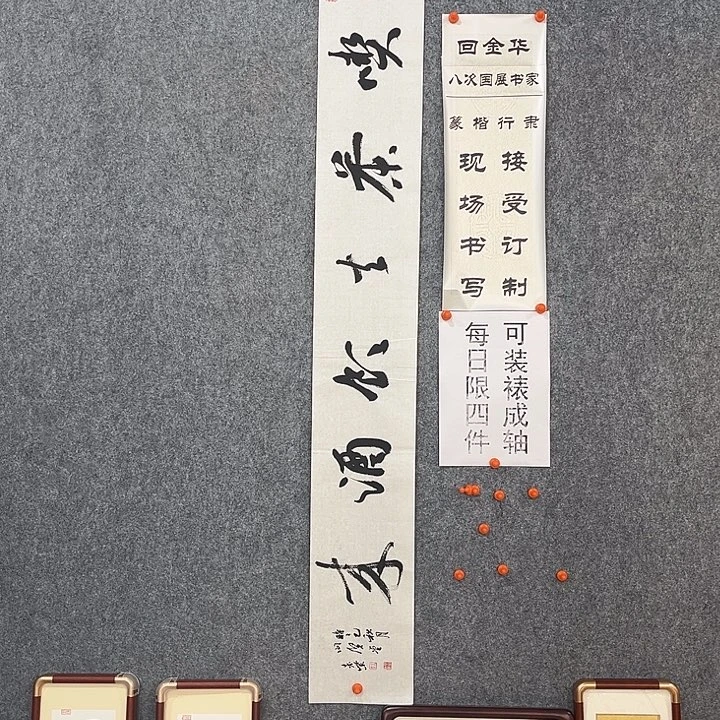 回金华
八次国展书家
篆楷行隶
接受订制
现场书写
可装裱成轴
每日限四件
喫茶去
酒